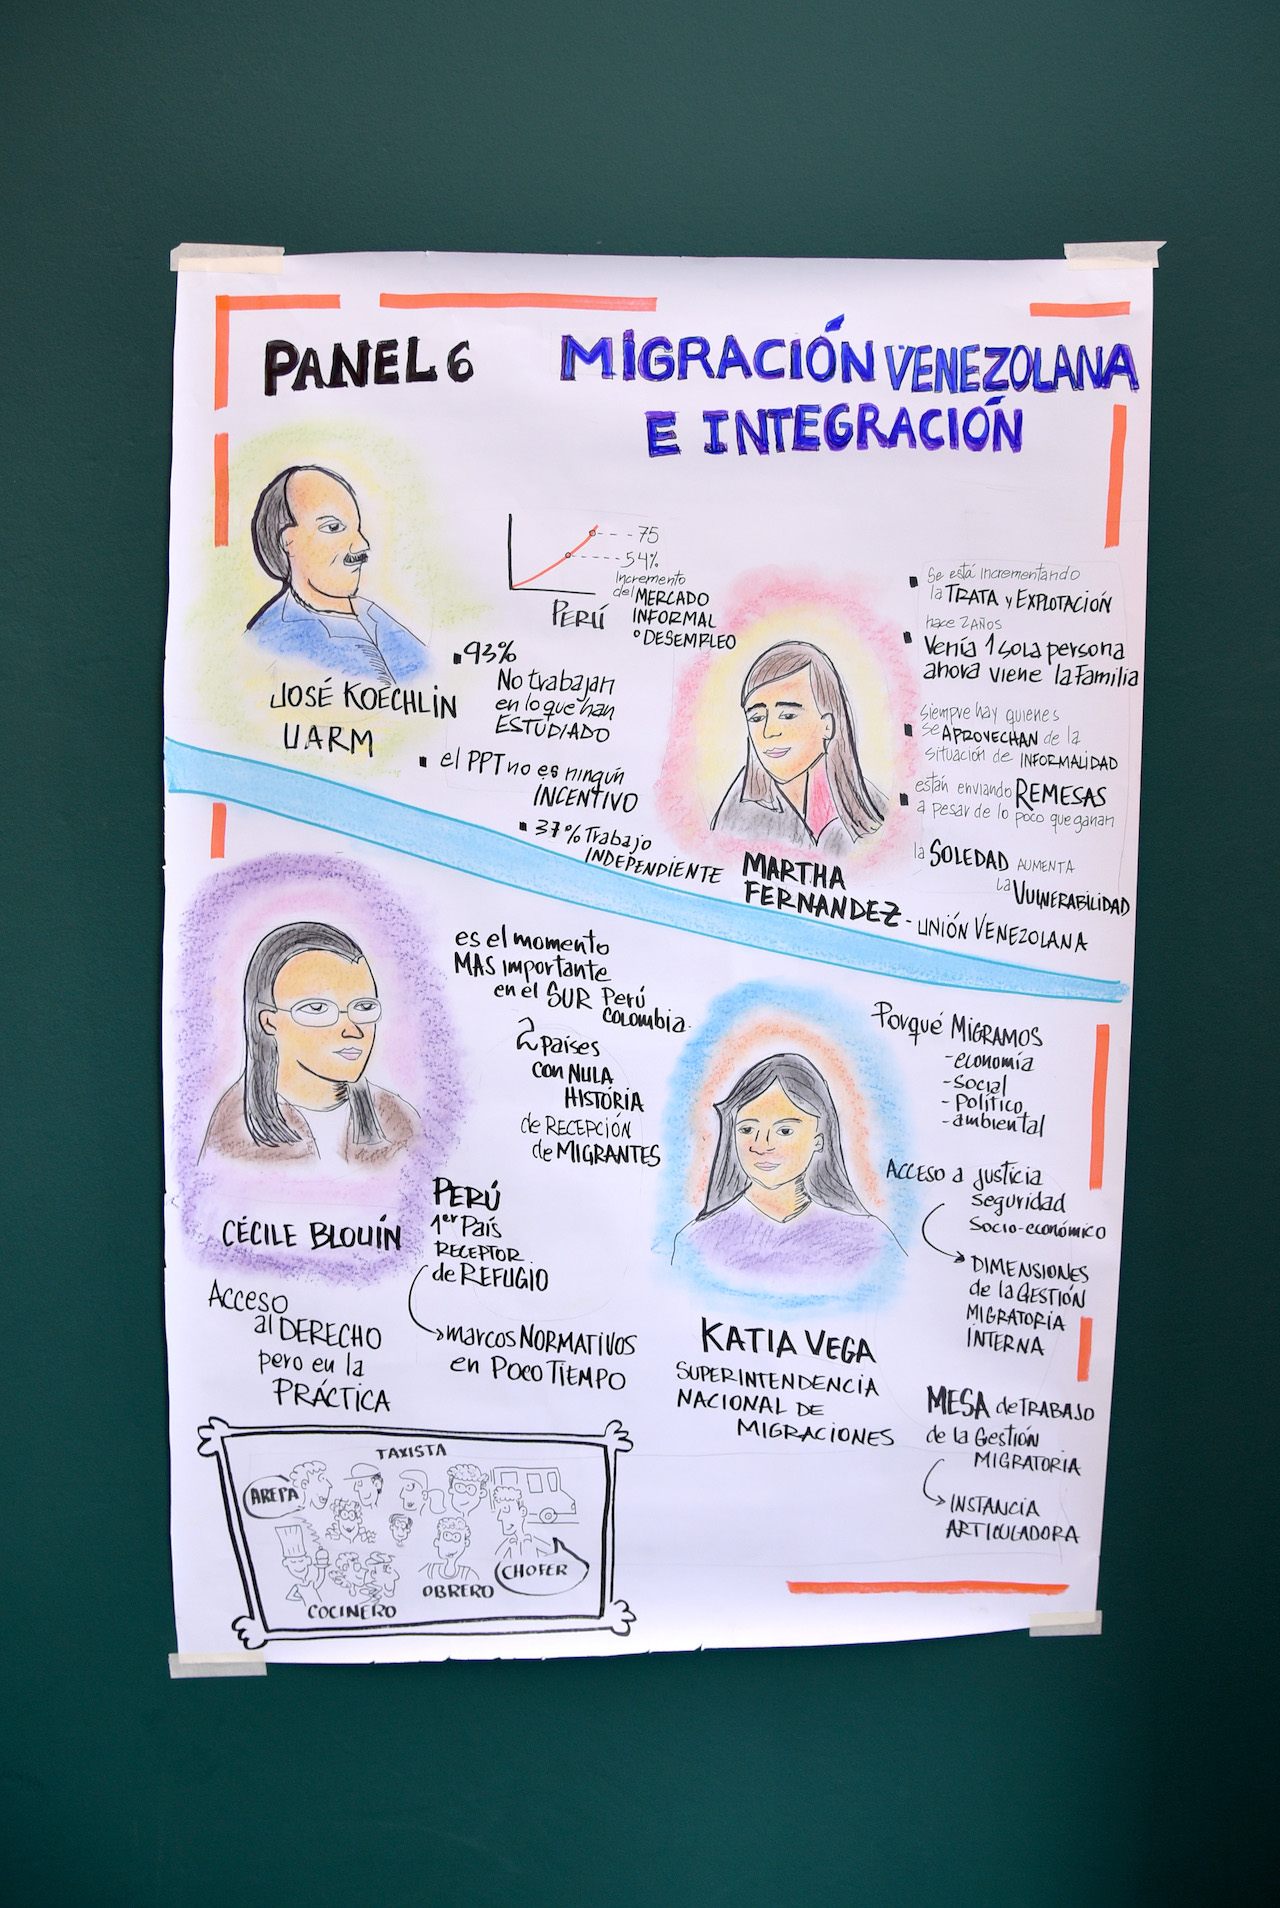 PANEL 6
MIGRACIÓN VENEZOLANA
E INTEGRACIÓN
75
54%
Incremento
del MERCADO
INFORMAL
o DESEMPLEO
PERÚ
JOSÉ KOECHLIN
UARM
93%
No trabajan
en lo que han
ESTUDIADO
el PPT no es ningún
INCENTIVO
37% Trabajo
INDEPENDIENTE
MARTHA
FERNANDEZ - UNIÓN VENEZOLANA
Se está incrementando
la TRATA y EXPLOTACIÓN
hace 2 AÑOS
Venía 1 sola persona
ahora viene la Familia
Siempre hay quienes
se APROVECHAN de la
situación de INFORMALIDAD
están enviando REMESAS
a pesar de lo poco que ganan
la SOLEDAD AUMENTA
la VULNERABILIDAD
CÉCILE BLOUÍN
es el momento
MAS importante
en el SUR Perú
Colombia
2 países
con NULA
HISTORIA
de RECEPCIÓN
de MIGRANTES
PERÚ
1er País
RECEPTOR
de REFUGIO
marcos NORMATIVOS
en POCO TIEMPO
Acceso
al DERECHO
pero en la
PRÁCTICA
TAXISTA
AREPA
CHOFER
OBRERO
COCINERO
KATIA VEGA
SUPERINTENDENCIA
NACIONAL DE
MIGRACIONES
Porqué MIGRAMOS
- economía
- Social
- Político
- ambiental
ACCESO a justicia
seguridad
Socio-económico
DIMENSIONES
de la GESTIÓN
MIGRATORIA
INTERNA
MESA de TRABAJO
de la Gestión
MIGRATORIA
INSTANCIA
ARTICULADORA